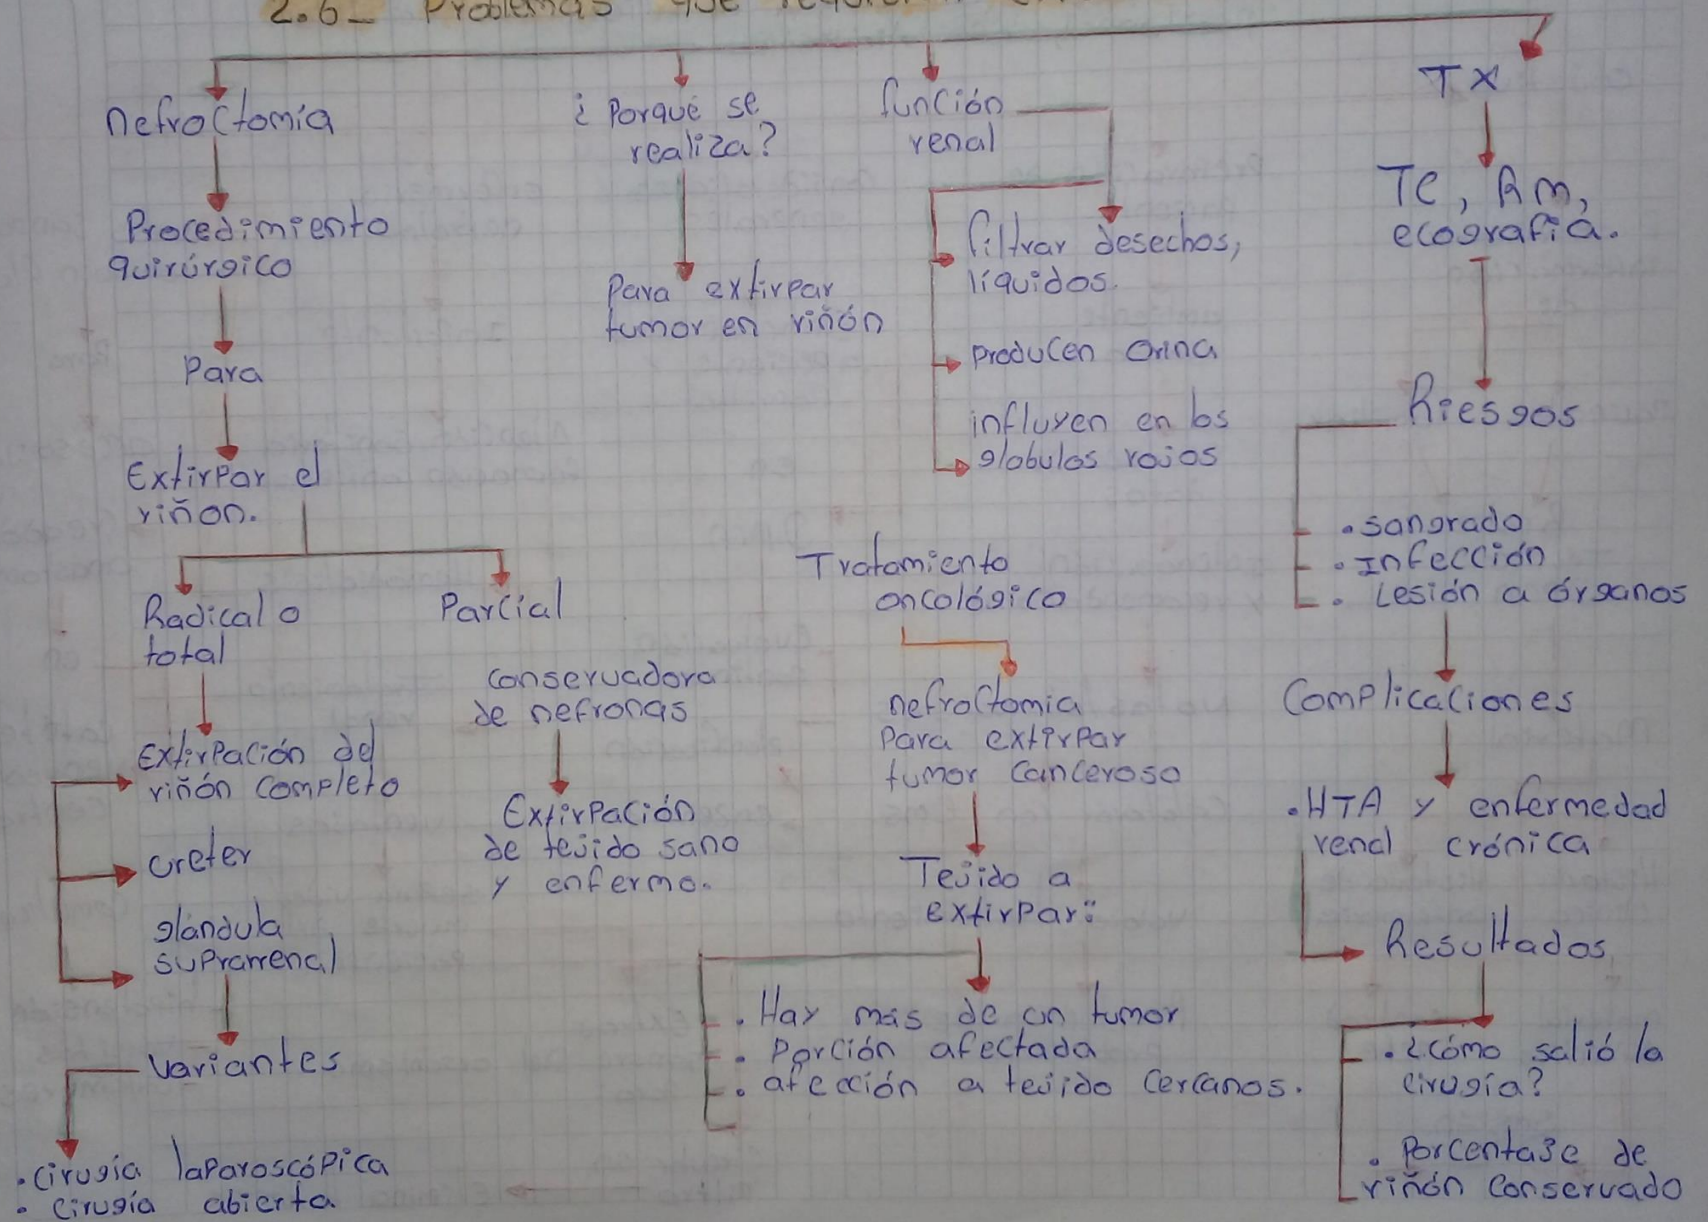 2.6_ Problemas que
nefroctomia
Procedimiento
quirúrgico
Para
Extirpar el
riñon.
Radical o
total
Extirpación del
riñón completo
ureter
glándula
suprarrenal
variantes
• cirugía laparoscópica
• cirugía abierta.
Parcial
conservadora
de nefronas
Extirpación
de tejido sano
y enfermo.
¿Porqué se
realiza?
Para extirpar
tumor en riñón
función
renal
filtrar desechos,
líquidos.
producen orina
influyen en los
globulos rojos
Tratamiento
oncológico
nefroctomia
para extirpar
tumor canceroso
Tejido a
extirpar:
• Hay más de un tumor
• Porción afectada
• afección a tejido cercanos.
TX
TC, RM,
ecografía.
Riesgos
• sangrado
• Infección
• Lesión a órganos
Complicaciones
• HTA y enfermedad
renal crónica
Resultados
• ¿cómo salió la
cirugía?
• Porcentaje de
riñón conservado